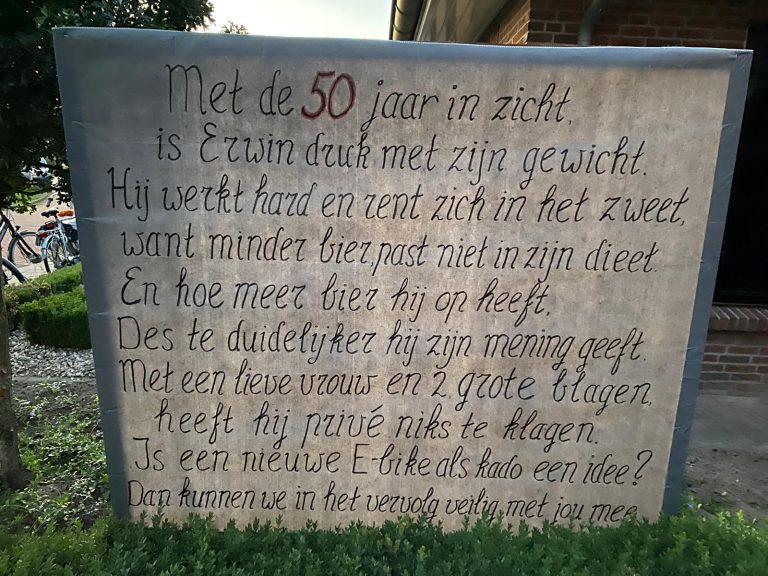 Met de 50 jaar in zicht,
is Erwin druk met zijn gewicht.
Hij werkt hard en rent zich in het zweet,
want minder bier, past niet in zijn dieet.
En hoe meer bier hij op heeft,
Des te duidelijker hij zijn mening geeft.
Met een lieve vrouw en 2 grote blagen,
heeft hij privé niks te klagen.
Is een nieuwe E-bike als kado een idee?
Dan kunnen we in het vervolg veilig met jou mee